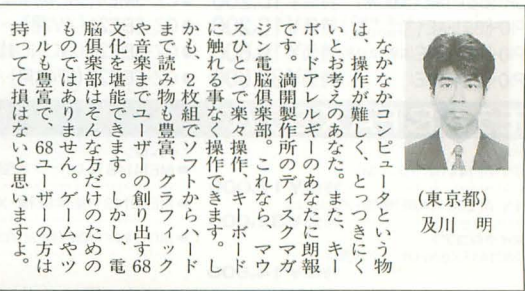 なかなかコンピュータという物
は、操作が難しく、とっつきにく
いとお考えのあなた。また、キー
ボードアレルギーのあなたに朗報
です。満開製作所のディスクマガ
ジン電脳倶楽部。これなら、マウ
スひとつで楽々操作、キーボード
に触れる事なく操作できます。し
かも、2枚組でソフトからハード
まで読み物も豊富、グラフィック
や音楽までユーザーの創り出す68
文化を堪能できます。しかし、電
脳倶楽部はそんな方だけのための
ものではありません。ゲームやツ
ールも豊富で、68ユーザーの方は
持ってて損はないと思いますよ。
(東京都)
及川 明